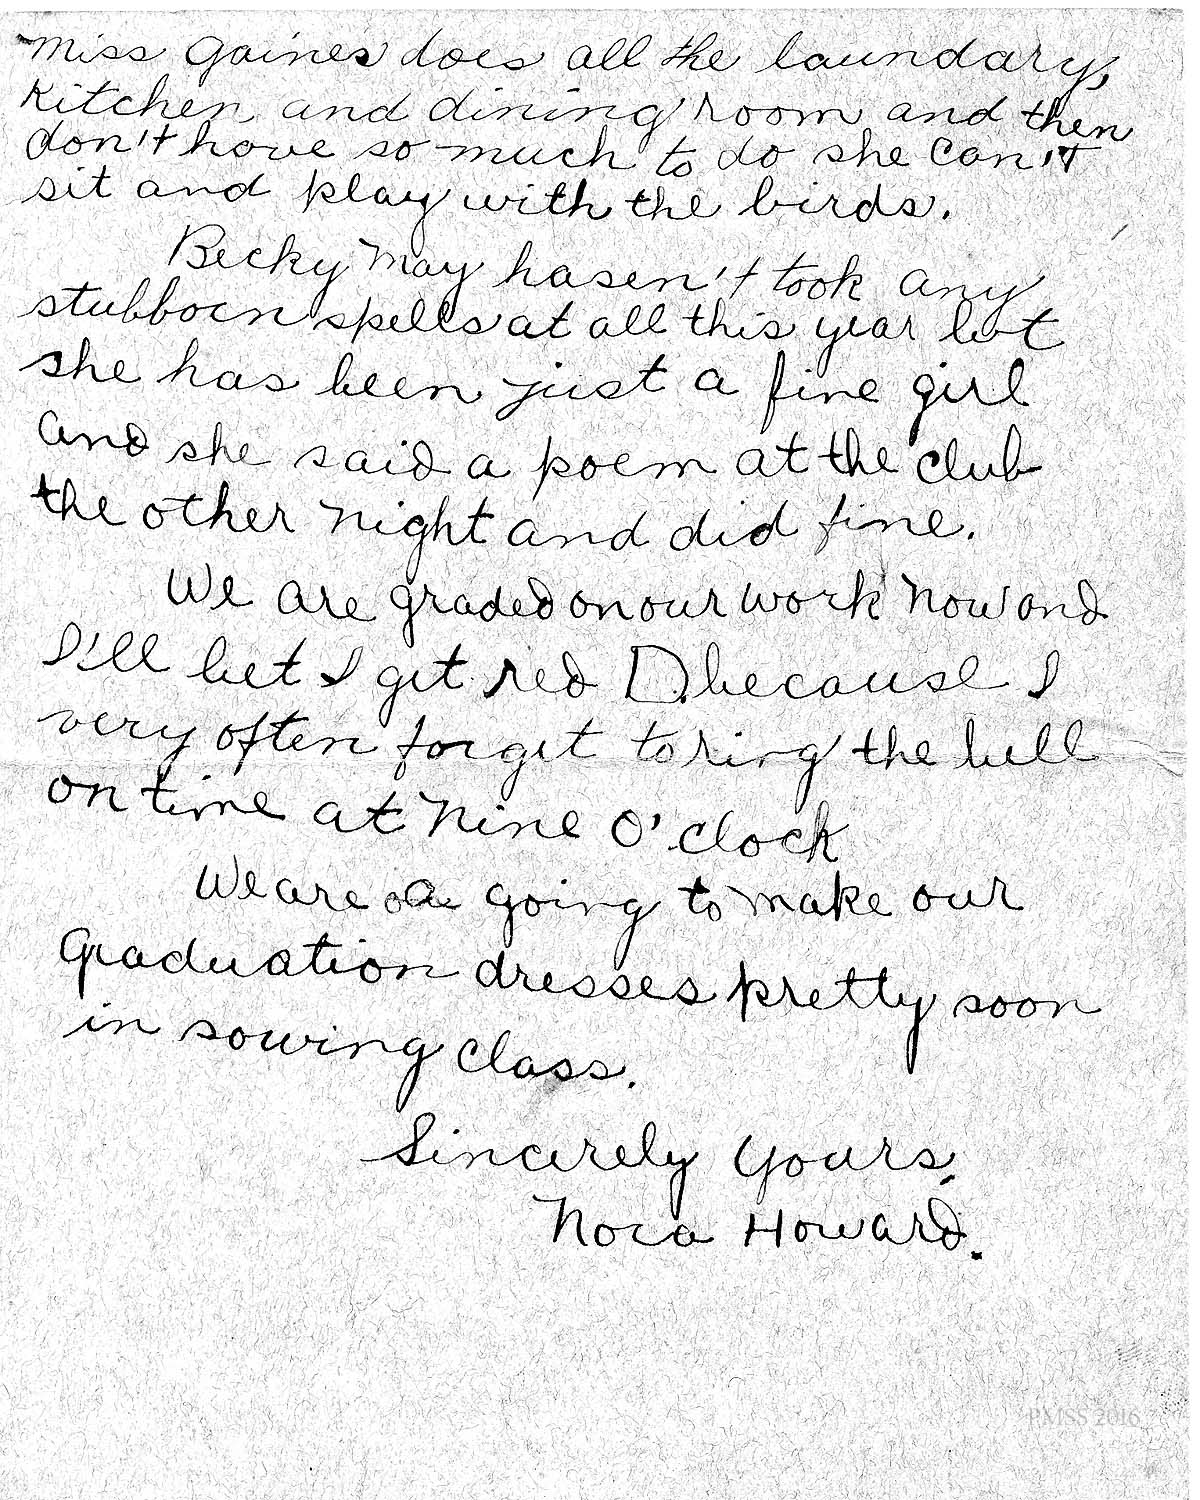 Miss Gaines does all the laundary,
Kitchen and dining room and then
don't have so much to do she can't
sit and play with the birds.
Becky May hasen't took any
stubborn spells at all this year but
she has been just a fine girl
and she said a poem at the club
the other night and did fine.
We are graded on our work now and
I'll bet I get red D. because I
very often forget to ring the bell
on time at Nine O'clock
We are a going to make our
graduation dresses pretty soon
in sowing class.
Sincerely Yours,
Nora Howard.
PMSS 2016